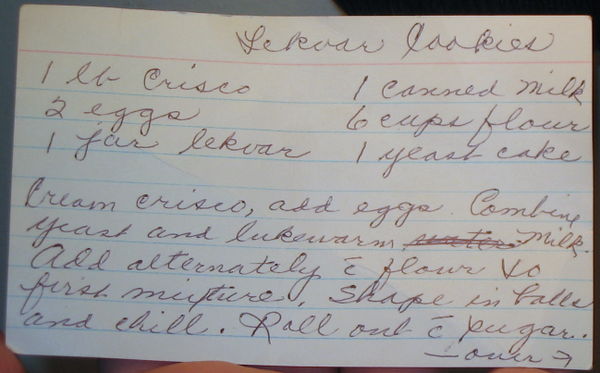 Lekvar Cookies
1 lb Crisco 1 canned milk
2 eggs 6 cups flour
1 jar lekvar 1 yeast cake
Cream crisco, add eggs. Combine
yeast and lukewarm water milk.
Add alternately c̄ flour to
first mixture. Shape in balls
and chill. Roll out c̄ sugar.
—over→